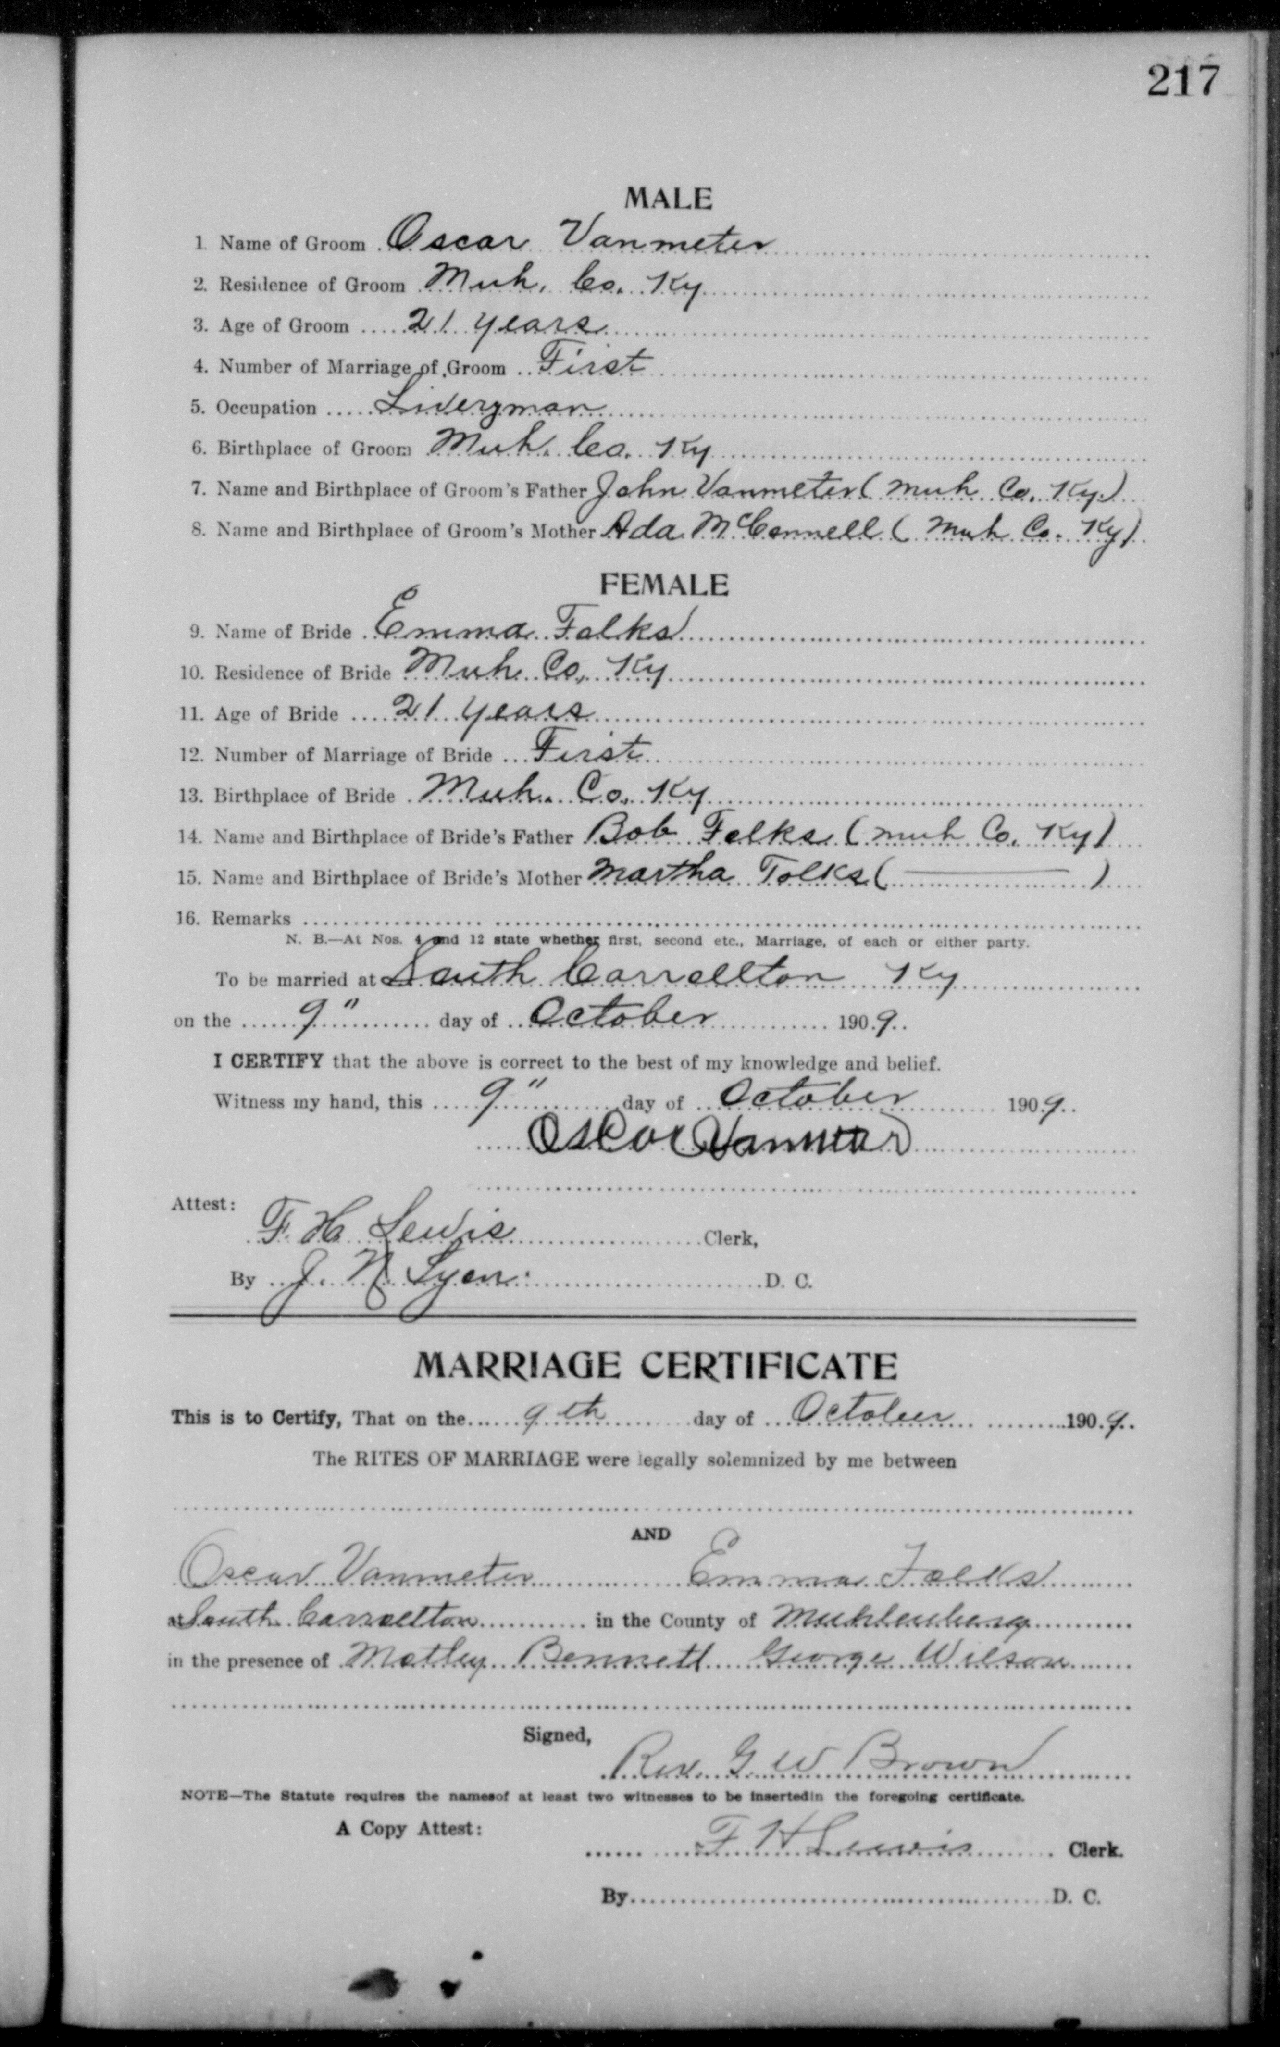 217
MALE
1 Name of Groom Oscar Vanmeter
2. Residence of Groom Muh. Co. Ky
3. Age of Groom 21 years
4. Number of Marriage of Groom First
5. Occupation Liveryman
6. Birthplace of Groom Muh. Co. Ky
7. Name and Birthplace of Groom's Father John Vanmeter (Muh Co. Ky.)
8. Name and Birthplace of Groom's Mother Ada McConnell (Muh Co. Ky)
FEMALE
9. Name of Bride Emma Folks
10. Residence of Bride Muh Co, Ky
11. Age of Bride 21 years
12. Number of Marriage of Bride First
13. Birthplace of Bride Muh. Co. Ky
14. Name and Birthplace of Bride's Father Bob Folks (Muh Co. Ky)
15. Name and Birthplace of Bride's Mother Martha Folks ( — )
16. Remarks
N. B.—At Nos. 4 and 12 state whether first, second etc., Marriage, of each or either party.
To be married at South Carrollton Ky
on the 9" day of October 1909.
I CERTIFY that the above is correct to the best of my knowledge and belief.
Witness my hand, this 9" day of October 1909.
Oscar Vanmeter
Attest:
F. H. Lewis Clerk,
By J. N Lyon. D. C.
MARRIAGE CERTIFICATE
This is to Certify, That on the 9th day of October 1909.
The RITES OF MARRIAGE were legally solemnized by me between
AND
Oscar Vanmeter Emma Folks
at South Carrollton in the County of Muhlenberg
in the presence of Motley Bennett George Wilson
Signed,
Rev. G W Brown
NOTE—The Statute requires the namesof at least two witnesses to be insertedin the foregoing certificate.
A Copy Attest:
F H Lewis Clerk.
By D. C.